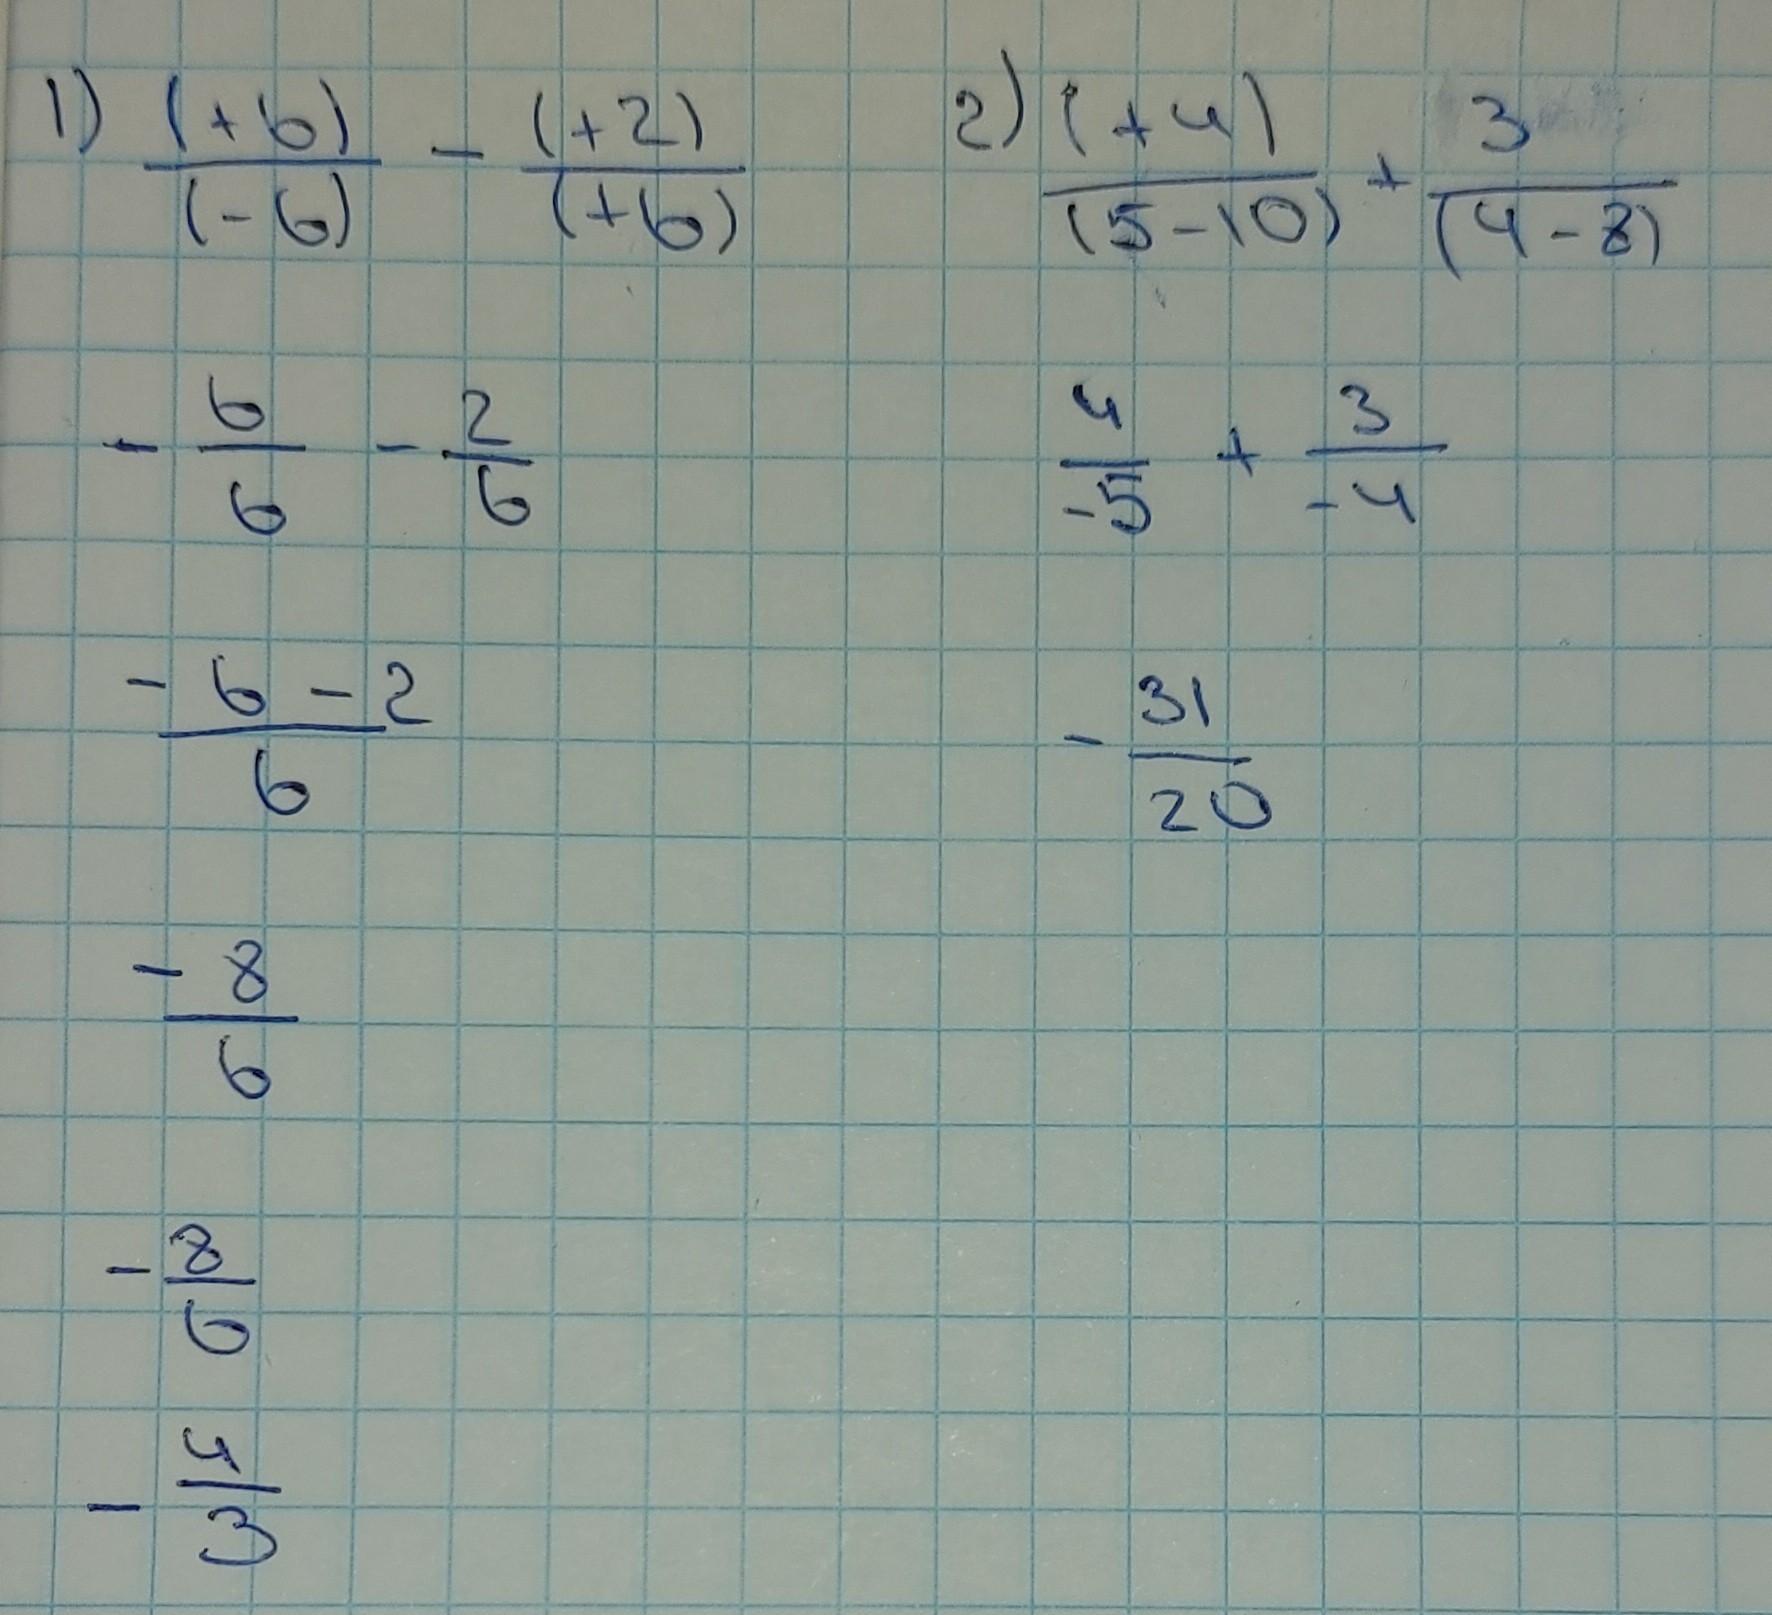 1) (+6)/(-6) - (+2)/(+6)
- 6/6 - 2/6
(- 6 - 2)/6
- 8/6
- 8/6
- 4/3
2) (+4)/(5-10) + 3/(4-8)
4/-5 + 3/-4
- 31/20